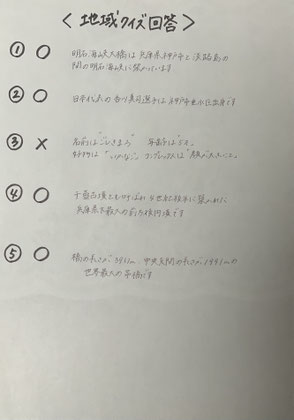 <地域クイズ回答>
① ○ 明石海峡大橋は兵庫県神戸市と淡路島の
間の明石海峡に架かっています
② ○ 日本代表の香川真司選手は神戸市垂水区出身です
③ × 名前は"ごしきまろ" 年齢は
好物は"いかなご" コンプレックスは"顔が大きいこと。
④ ○ 千壺古墳とも呼ばれ 4世紀後半に築かれた
兵庫県下最大の前方後円墳です
⑤ ○ 橋の長さが3911m、中央支間の長さが1991mの
世界最大の吊橋です